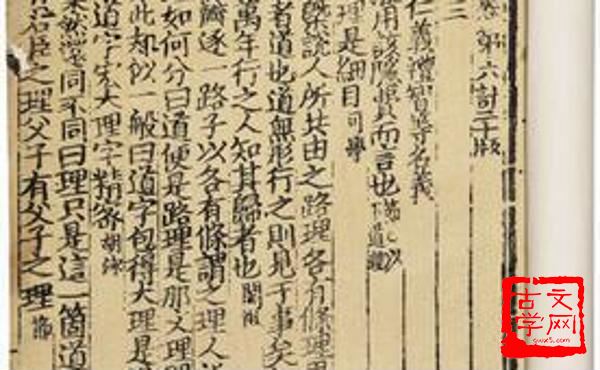 第六計三十版
三
仁義禮智等名義
用該隱費而言也節〇以下道理
理是細目可學
槩說人所共由之路理各有條理界
者道也道無形行之則見于事矣
萬年行之人知其歸者也閎祖
瓣逐一路子以各有條謂之理人
如何分曰道便是路理是那文理
此却似一般曰道字包得大理是
道字宏大理字精密胡泳
然瀅同不同曰理只是這一箇道
有君臣之理父子有父子之理節
古文
学网
gwx5.com